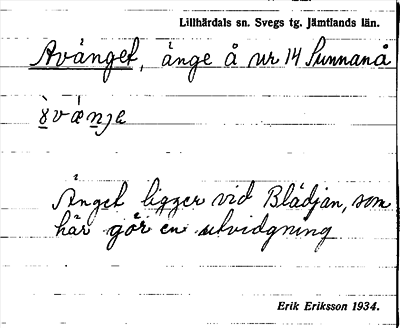 Lillhärdals sn. Svegs tg. Jämtlands län.
Avänget, änge å ur 14 Sunnanå
Änget ligger vid Blädjan, som
här gör en utvidgning
Erik Eriksson 1934.